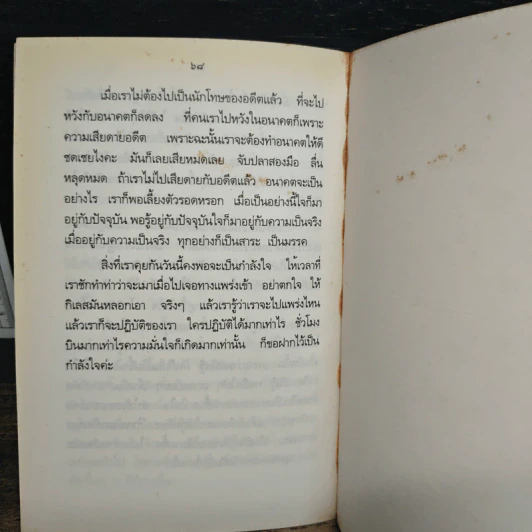 ๖๘
เมื่อเราไม่ต้องไปเป็นนักโทษของอดีตแล้ว ที่จะไป
หวังกับอนาคตก็ลดลง ที่คนเราไปหวังในอนาคตก็เพราะ
ความเสียดายอดีต เพราะฉะนั้นเราจะต้องทำอนาคตให้ดี
ชดเชยไงคะ มันก็เลยเสียหมดเลย จับปลาสองมือ ลื่น
หลุดหมด ถ้าเราไม่ไปเสียดายกับอดีตแล้ว อนาคตจะเป็น
อย่างไร เราก็พอเลี้ยงตัวรอดหรอก เมื่อเป็นอย่างนี้ใจก็มา
อยู่กับปัจจุบัน พอรู้อยู่กับปัจจุบันใจก็มาอยู่กับความเป็นจริง
เมื่ออยู่กับความเป็นจริง ทุกอย่างก็เป็นสาระ เป็นมรรค
สิ่งที่เราคุยกันวันนี้คงพอจะเป็นกำลังใจ ให้เวลาที่
เราชักทำท่าว่าจะเมาเมื่อไปเจอทางแพร่งเข้า อย่าตกใจ ให้
กิเลสมันหลอกเอา จริงๆ แล้วเรารู้ว่าเราจะไปแพร่งไหน
แล้วเราก็จะปฏิบัติของเรา ใครปฏิบัติได้มากเท่าไร ชั่วโมง
บินมากเท่าไรความมั่นใจก็เกิดมากเท่านั้น ก็ขอฝากไว้เป็น
กำลังใจค่ะ